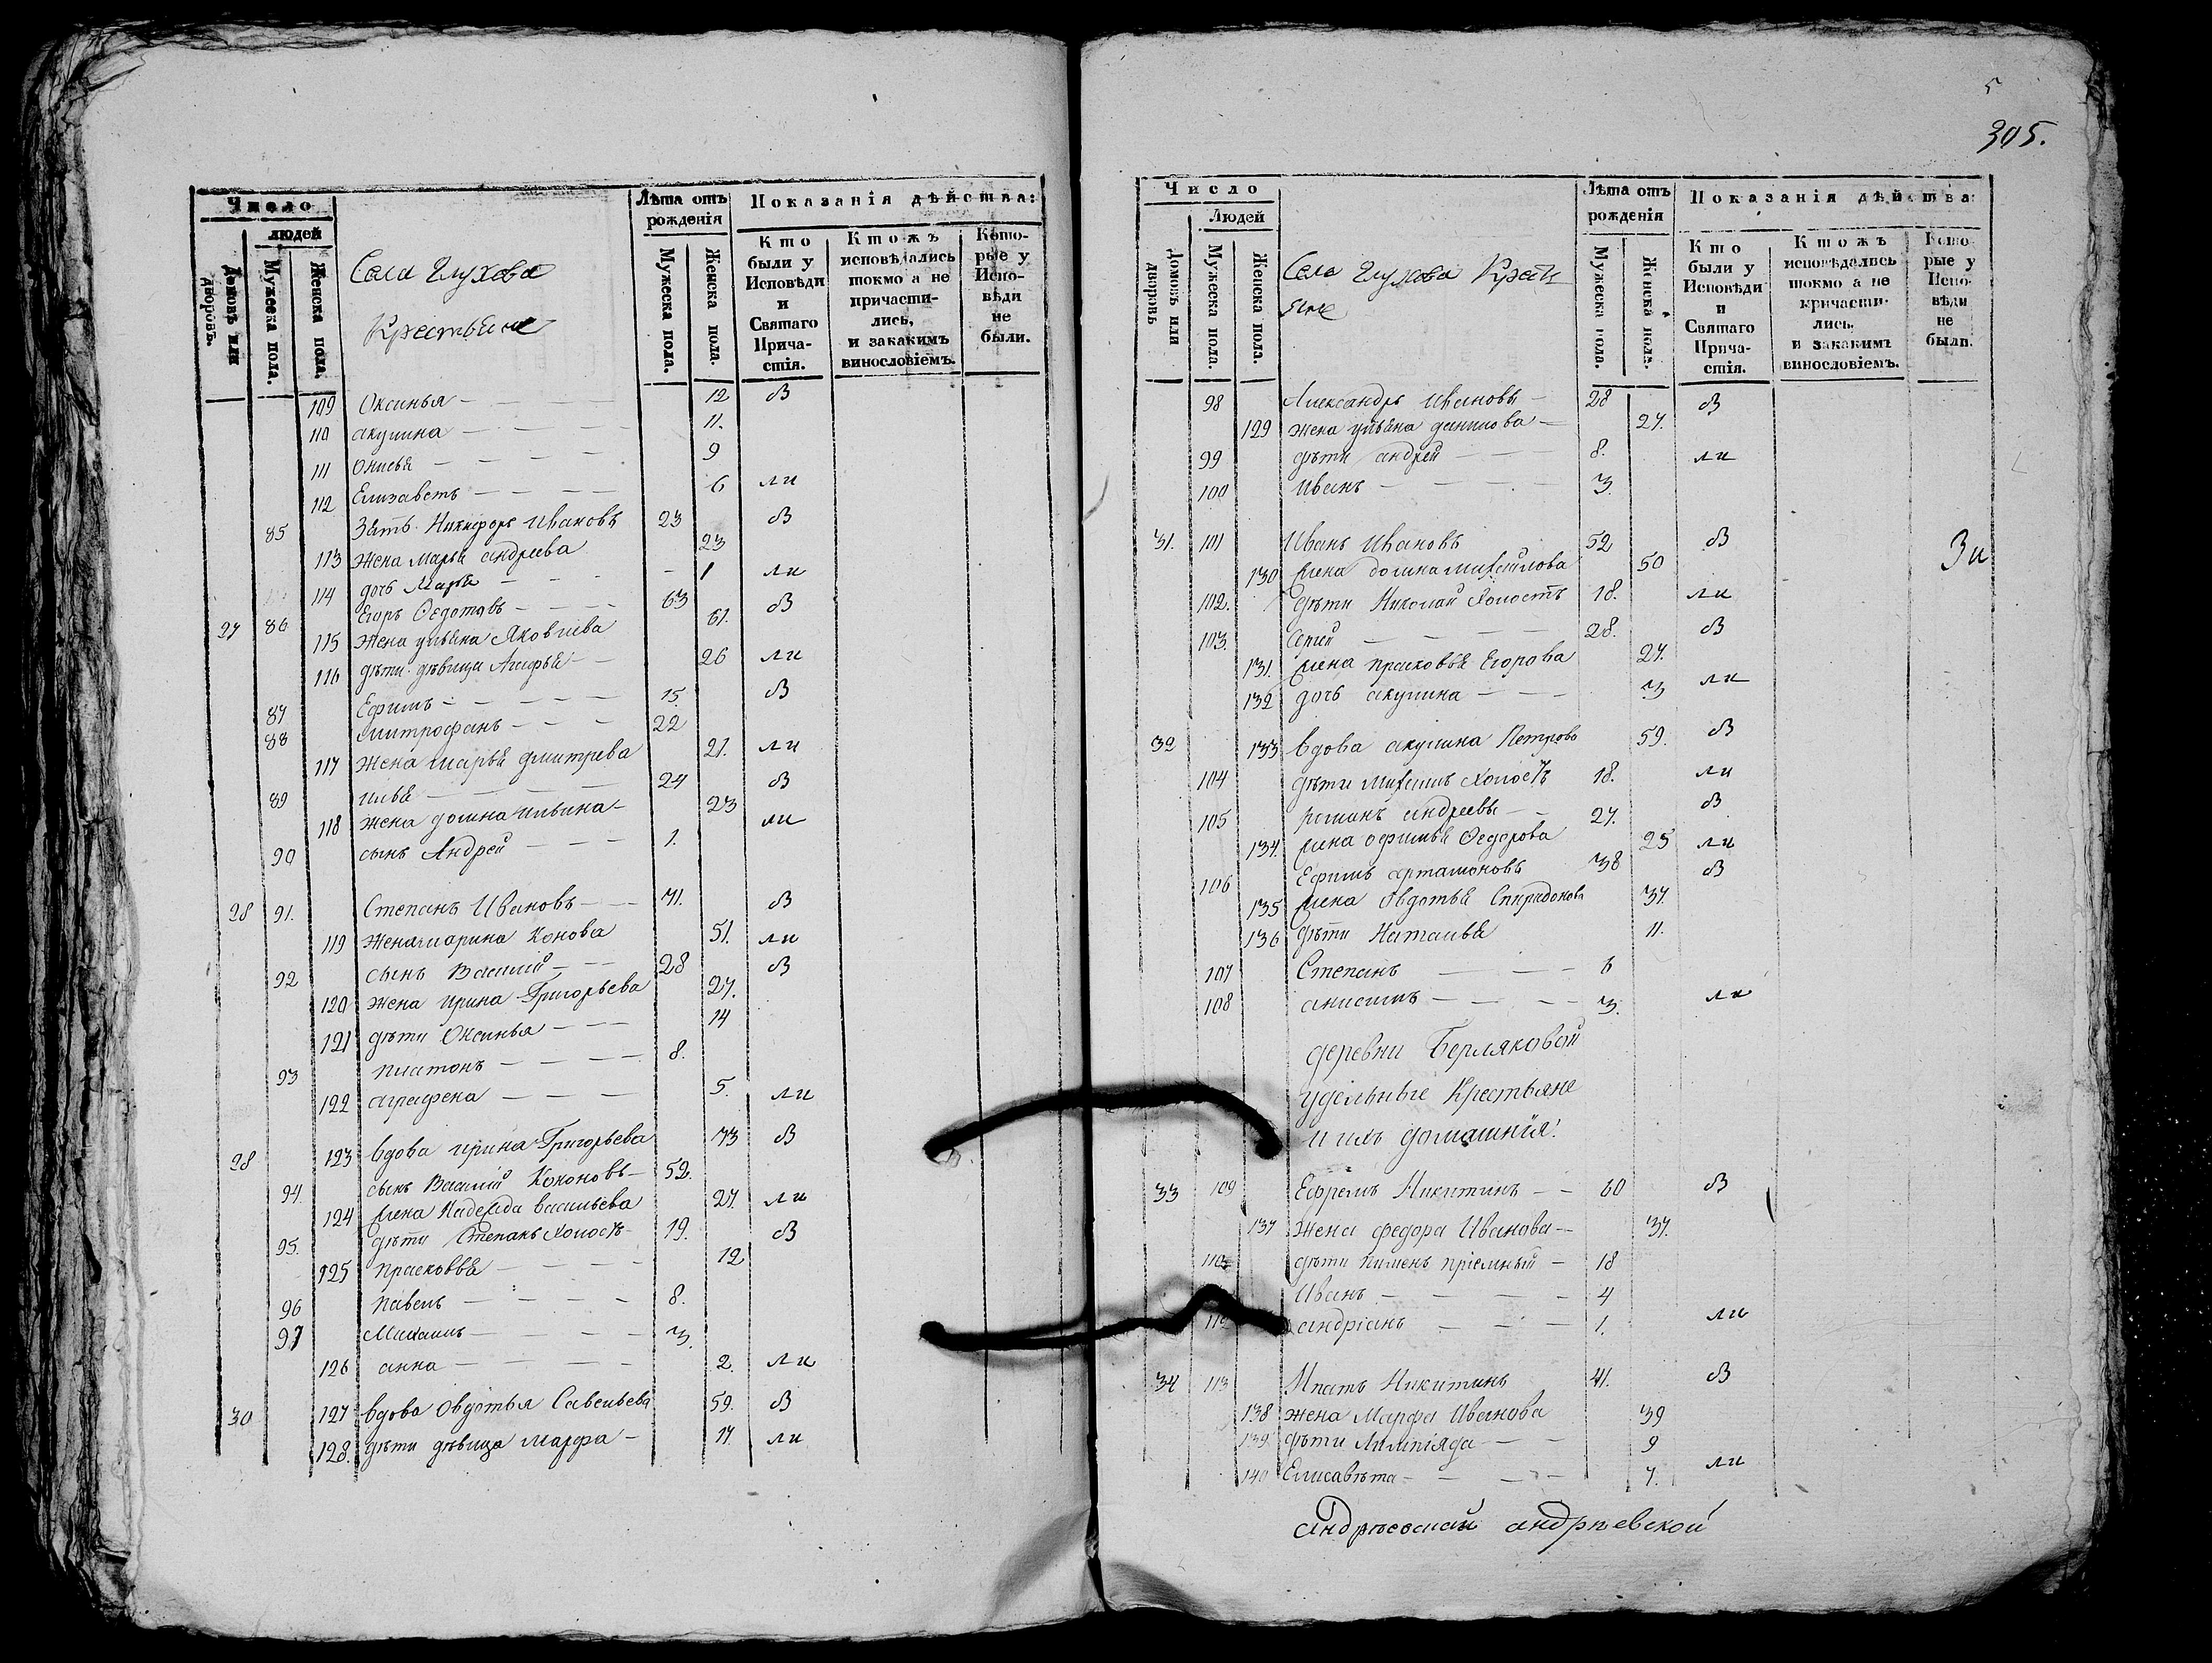 Число
людей
Домовъ или дворовъ.
Мужеска пола.
Женска пола.
Села Глухова
Крестьяне
Лѣта отъ рожденія
Мужеска пола.
Женска пола.
Показанія дѣйства:
Кто были у Исповѣди и Святаго Прича-стія.
Ктожъ исповѣдались токмо а не причасти-лись, и закакимъ винословіемъ.
Кото-рые у Испо-вѣди не были.
109 Оксинья 12 в
110 акулина 11.
111 Онисья 9
112 Елизаветъ 6 ли
85 Зять Никифоръ Ивановъ 23 в
113 Жена Марья андреева 23
114 дочь Марья 1 ли
27 86 Егоръ Ѳедотовъ 63 в
115 Жена ульяна Яковлева 61.
116 дѣти дѣвица Агафья 26 ли
87 Ефимъ 15. в
88 Митрофанъ 22
117 Жена марья дмитрева 21. ли
89 илья 24 в
118 жена домна ильина 23
90 сынъ Андрей 1. ли
28 91. Степанъ Ивановъ 71. в
119 Жена марина Конова 51. ли
92 сынъ Василий 28 в
120 жена ирина Григорьева 27.
121 дѣти Оксинья 14
93 платонъ 8.
122 аграфена 5. ли
28 123 вдова ирина Григорьева 73 в
94 сынъ Василий Кононовъ 52.
124 жена Надежда васильева 27. ли
95. дѣти Степанъ холостъ 19. в
125 прасковья 12
96 павелъ 8.
97 Михаилъ 3.
126 анна 2. ли
30 127 вдова Овдотья Савельева 59. в
128. дѣти дѣвица марфа 17. ли
5
305.
Число
Людей
Домовъ или дворовъ
Мужеска пола.
Женска пола.
Села Глухова Крестьяне
Лѣта отъ рожденія
Мужеска пола.
Женска пола.
Показанія дѣйства:
Кто были у Исповѣди и Святаго Прича-стія.
Ктожъ исповѣдались токмо а не причасти-лись, и закакимъ винословіемъ.
Кото-рые у Испо-вѣди не были.
98 Александръ Ивановъ 28 в
129 жена ульяна данилова 27.
99 дѣти андрей 8. ли
100 Иванъ 3.
31. 101 Иванъ Ивановъ 52 в
130 жена домна михайлова 50
102. дѣти Николай холостъ 18. ли
103. Сергей 28. в
131. жена прасковья Егорова 27.
132 дочь акулина 3 ли
32 133 вдова акулина Петрова 59. в
104 дѣти михаилъ холостъ 18. ли
105 романъ андреевъ 27. в
134. жена офимья Ѳедорова 25 ли
106 Ефимъ артамоновъ 38 в
135 жена Овдотья Спиридонова 37.
136 дѣти Наталья 11.
107 Степанъ 6
108 анисимъ 3. ли
деревни Берляковой
удельные Крестьяне
и ихъ домашнія:
33 109 Ефремъ Никитинъ 60 в
137 Жена федора Иванова 37.
110 дѣти пименъ пріемный 18
Иванъ 4
112 андріанъ 1. ли
34 113 Ипатъ Никитинъ 41. в
138 жена Марфа Иванова 39
139 дѣти Алимпіяда 9
140 Елисавѣта 7. ли
андрѣевской